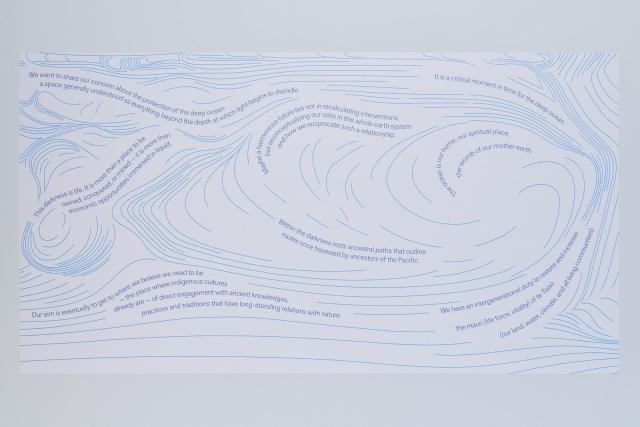 We want to share our concern about the protection of the deep ocean,
a space generally understood as everything beyond the depth at which light begins to dwindle.
It is a critical moment in time for the deep ocean.
Maybe a harmonious future lies not in recalculating interventions,
but reconceptualising our roles in this whole earth system
and how we reciprocate such a relationship.
The ocean is our home, our spiritual place,
the womb of our mother earth.
This darkness is life. It is more than a place to be
owned, conquered, or mined – it is more than
economic opportunities immersed in liquid.
Within the darkness rests ancestral paths that outline
routes once traversed by ancestors of the Pacific.
Our aim is eventually to get to where we believe we need to be
– the place where indigenous cultures
already are – of direct engagement with ancient knowledges,
practices and traditions that have long-standing relations with nature.
We have an intergenerational duty to restore and increase
the mauri (life force, vitality) of te Taiao
(our land, water, climate, and all living communities).